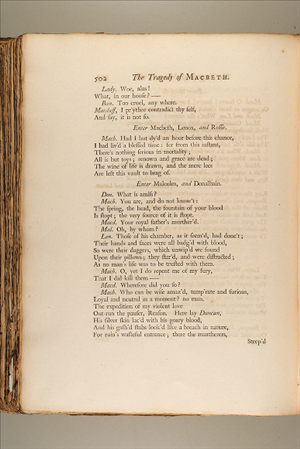 502 The Tragedy of MACBETH.
Lady. Woe, alas!
What, in our house? —
Ban. Too cruel, any where.
Macduff, I pr'ythee contradict thy self,
And say, it is not so.
Enter Macbeth, Lenox, and Rosse.
Macb. Had I but dy'd an hour before this chance,
I had liv'd a blessed time: for from this instant,
There's nothing serious in mortality;
All is but toys; renown and grace are dead;
The wine of life is drawn, and the meer lees
Are left this vault to brag of.
Enter Malcolm, and Donalbain.
Don. What is amiss?
Macb. You are, and do not know't:
The spring, the head, the fountain of your blood
Is stopt; the very source of it is stopt.
Macd. Your royal father's murther'd.
Mal. Oh, by whom?
Len. Those of his chamber, as it seem'd, had done't;
Their hands and faces were all badg'd with blood,
So were their daggers, which unwip'd we found
Upon their pillows; they star'd, and were distracted;
As no man's life was to be trusted with them.
Macb. O, yet I do repent me of my fury,
That I did kill them —
Macd. Wherefore did you so?
Macb. Who can be wise amaz'd, temp'rate and furious,
Loyal and neutral in a moment? no man.
The expedition of my violent love
Out-ran the pauser, Reason. Here lay Duncan,
His silver skin lac'd with his goary blood,
And his gash'd stabs look'd like a breach in nature,
For ruin's wasteful entrance; there the murtherers,
Steep'd